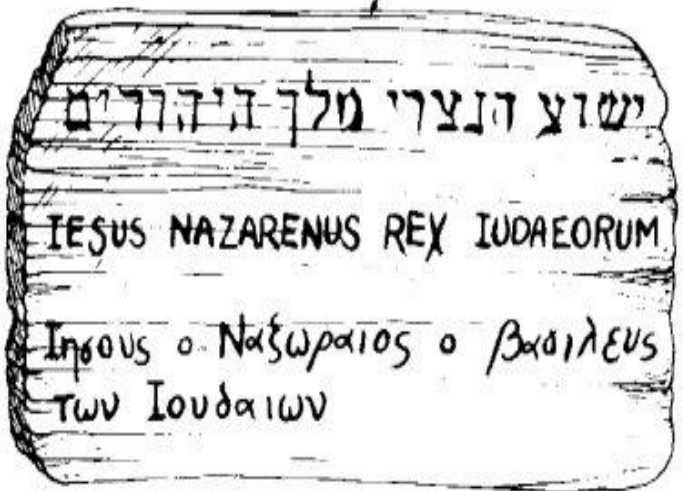 ישוע הנצרי מלך היהודים
IESUS NAZARENUS REX IUDAEORUM
Ιησους ο Ναζωραιος ο βασιλευς
των Ιουδαιων